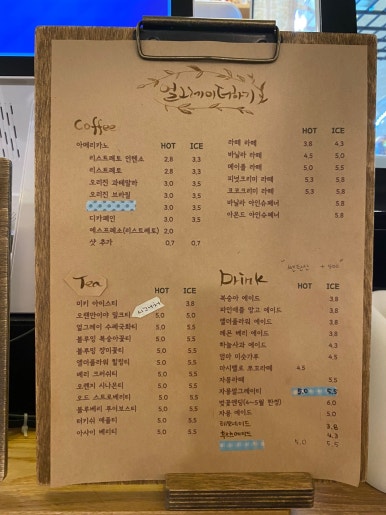 얼그레이더하기
Coffee
HOT ICE
아메리카노
리스트레토 인텐소 2.8 3.3
리스트레토 2.8 3.3
오리진 과테말라 3.0 3.5
오리진 브라질 3.0 3.5
3.0 3.5
디카페인 3.0 3.5
에스프레소(리스트레토) 2.0
샷 추가 0.7 0.7
HOT ICE
라떼 라떼 3.8 4.3
바닐라 라떼 4.5 5.0
메이플 라떼 5.0 5.5
피넛크리미 라떼 5.3 5.8
코코크리미 라떼 5.3 5.8
바닐라 아인슈페너 5.8
아몬드 아인슈페너 5.8
Tea
HOT ICE
미키 아이스티 3.8
오렌만이야 밀크티 5.0 5.0
얼그레이 수페국화티 5.0 5.5
블루밍 복숭아꽃티 5.0 5.5
블루밍 장미꽃티 5.0 5.5
엘더플라워 힐링티 5.0 5.5
베리 크러쉬티 5.0 5.5
오렌지 시나몬티 5.0 5.5
오드 스트로베리티 5.0 5.5
블루베리 루이보스티 5.0 5.5
터키쉬 애플티 5.0 5.5
아사이 베리티 5.0 5.5
Drink
HOT ICE
복숭아 에이드 3.8
파인애플 망고 에이드 3.8
엘더플라워 에이드 3.8
레몬 베리 에이드 3.8
하늘사과 에이드 4.3
엄마 미숫가루 4.5
마시멜로 초코라떼 4.5
자몽라떼 5.5
자몽얼그레이티 5.0 5.5
벚꽃엔딩(4~5월 한정) 6.0
자몽 에이드 5.0
3.8
4.3
5.0 5.5